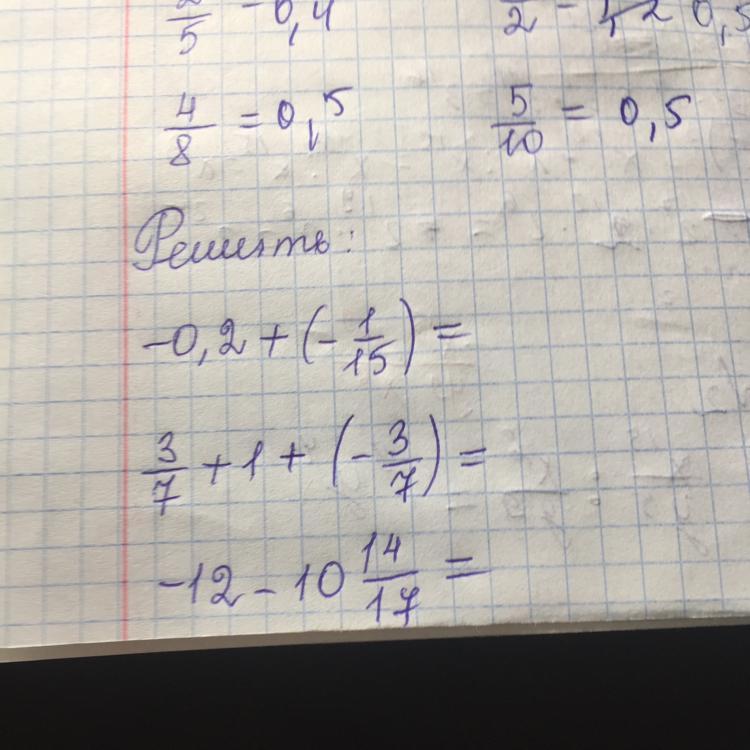 2/5 = 0,4
4/8 = 0,5 5/10 = 0,5
Решить:
-0,2 + (-1/15) =
3/7 + 1 + (-3/7) =
-12 - 10 14/17 =